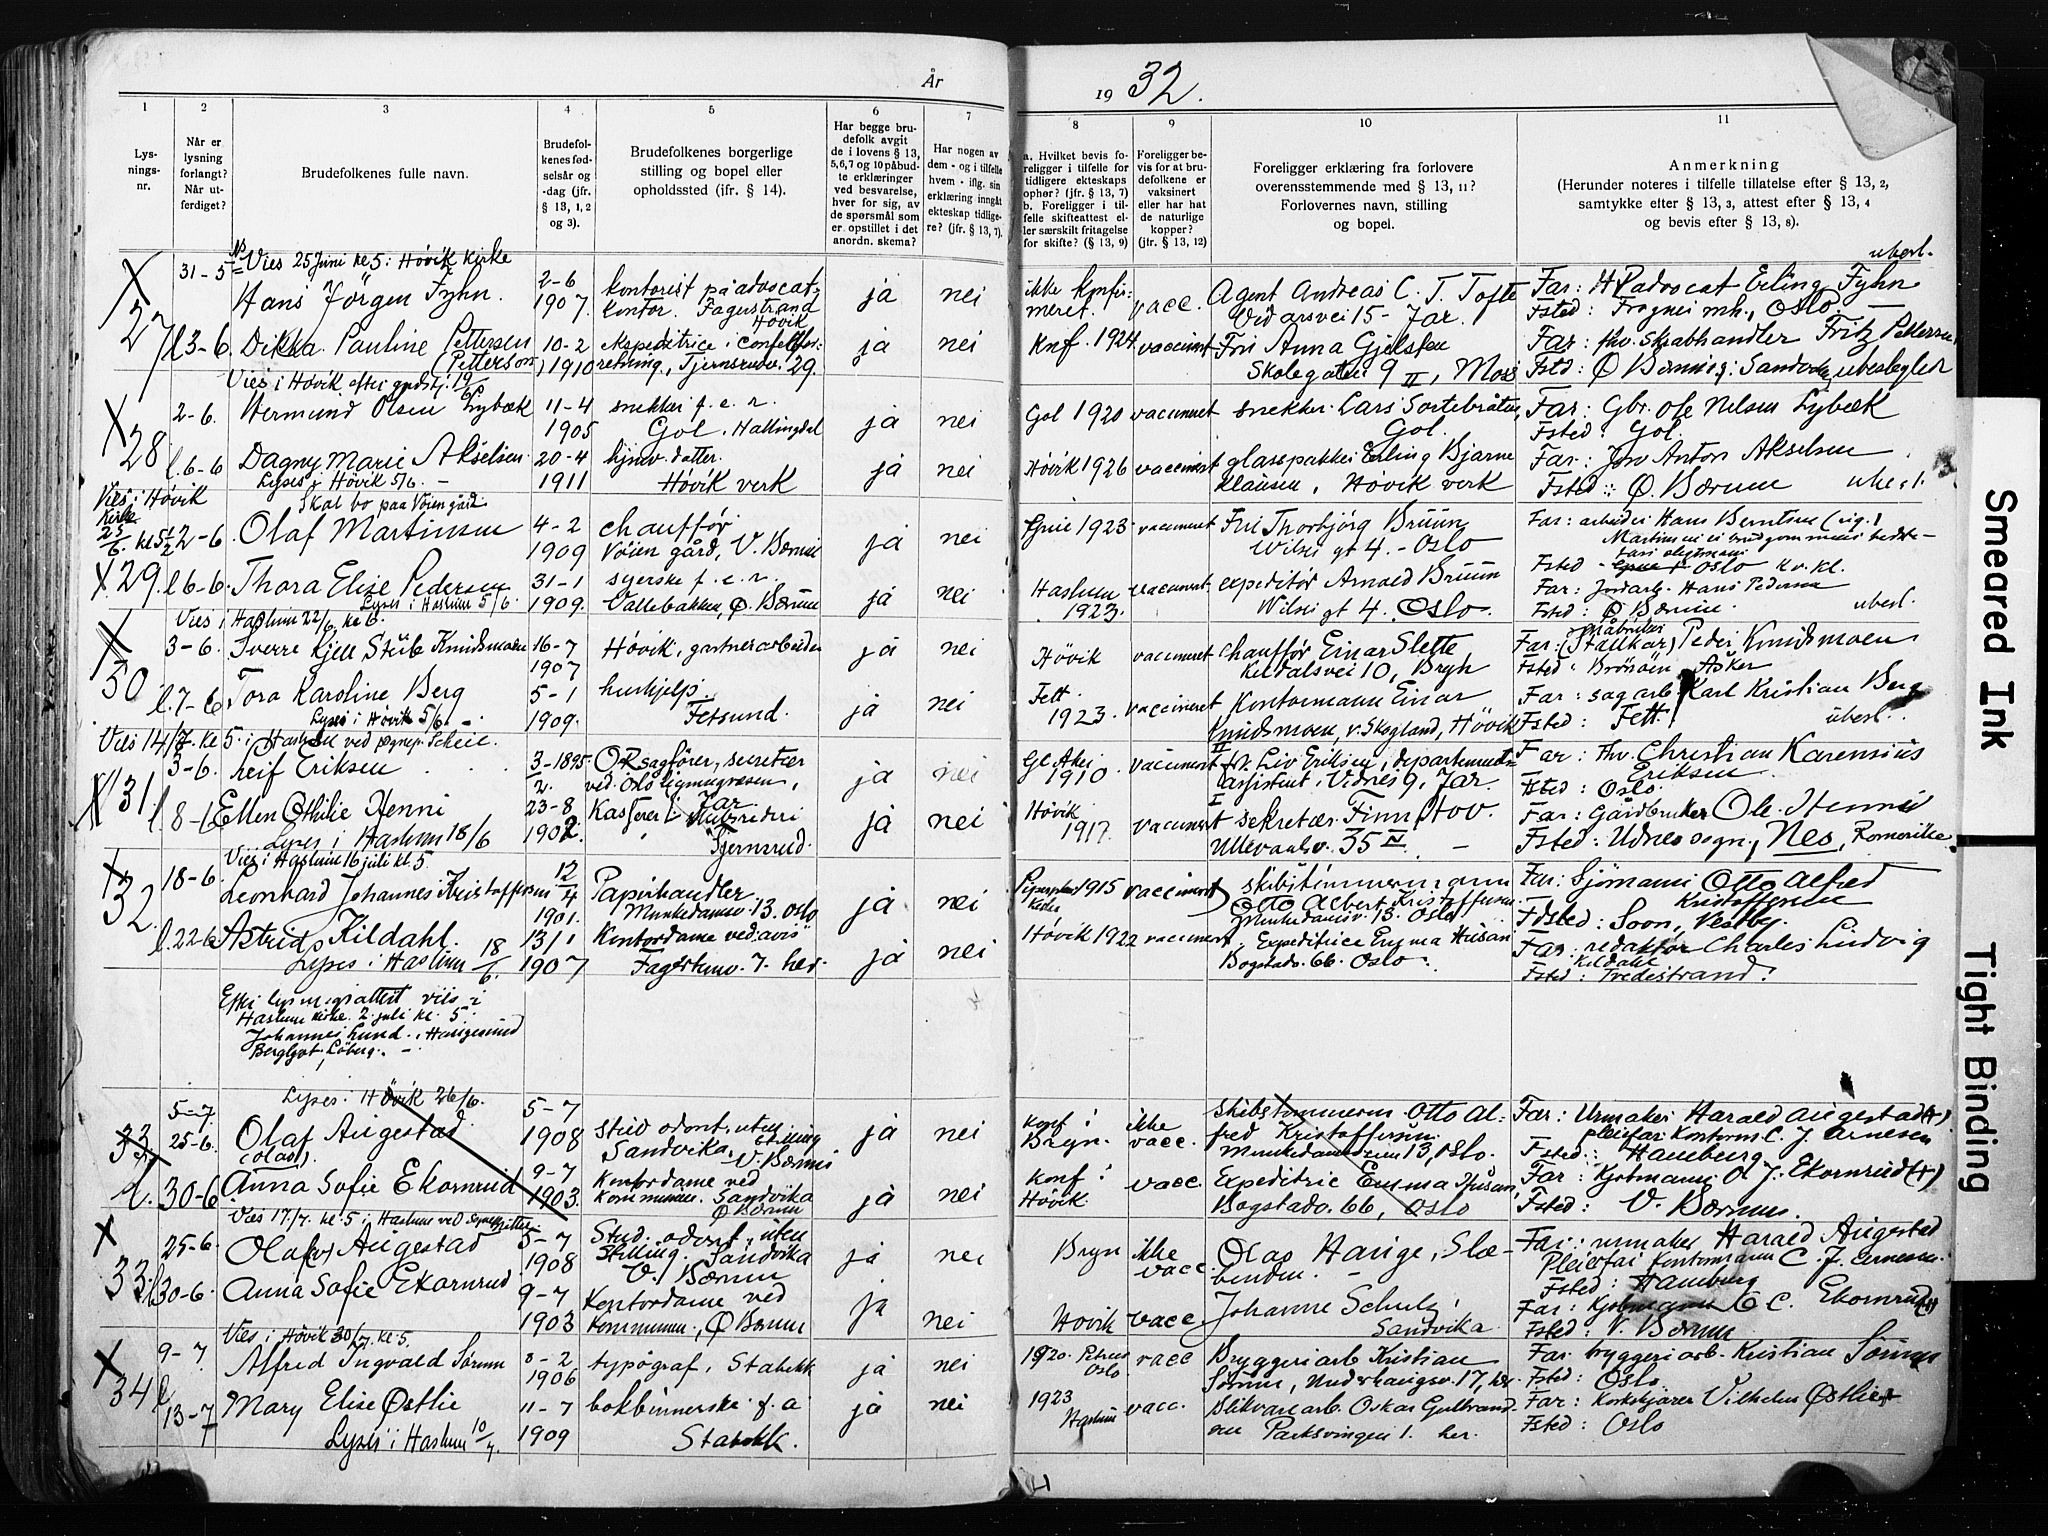 År
1932.
1
2
3
4
5
6
7
8
9
10
11
Lys-
nings-
nr.
Når er
lysning
forlangt?
Når ut-
ferdiget?
Brudefolkenes fulle navn.
Brudefol-
kenes fød-
selsår og
-dag (jfr.
§ 13, 1, 2
og 3).
Brudefolkenes borgerlige
stilling og bopel eller
opholdssted (jfr. § 14).
Har begge bru-
defolk avgit
de i lovens § 13,
5,6,7 og 10 påbud-
te erklæringer
ved besvarelse,
hver for sig, av
de spørsmål som
er opstillet i det
anordn. skema?
Har nogen av
dem - og i tilfelle
hvem - iflg. sin
erklæring inngått
ekteskap tidlige-
re? (jfr. § 13, 7).
a. Hvilket bevis fo-
religger i tilfelle for
tidligere ekteskaps
ophør? (jfr. § 13, 7)
b. Foreligger i til-
felle skifteattest el-
ler særskilt fritagelse
for skifte? (§ 13, 9)
Foreligger be-
vis for at bru-
defolkene er
vaksinert
eller har hat
de naturlige
kopper?
(jfr. § 13, 12)
Foreligger erklæring fra forlovere
overensstemmende med § 13, 11?
Forlovernes navn, stilling
og bopel.
Anmerkning
(Herunder noteres i tilfelle tillatelse efter § 13, 2,
samtykke efter § 13, 3, attest efter § 13, 4
og bevis efter § 13, 8).
Vies 25 Juni kl 5 i Høvik kirke
27
31-5
Hans Jörgen Fyhn.
2-6
1907.
kontorist på advocat-
kontor. Fagerstrand
Høvik
ja
nei
ikke konfir-
meret.
vacc.
Agent Andreas C. T. Tofte
Vidarsvei 15 - Jar.
ubesl.
Far: advocat Erling Fyhn
Fsted: Frogner mh., Oslo -
l3-6.
Dikka Pauline Pettersen
(Petterson)
10-2
1910
ekspeditrice i
29.
ja
nei
Knf. 1924
vaccinert
Frk Anna Gjelsten
Skolegaten 9 II, Moss
Far: fhv. Skabhandler Fritz Pettersen
Fsted: Ø Bærum, Sandvika, ubeslegtet
Vies i Høvik efter gudstj. 19/6
28
2-6.
Hermund Olsen Lybæk
11-4
1905
snekker f. e. r.
Gol, Hallingdal
ja
nei
Gol 1920
vaccineret
snekker Lars Sortebråten,
Gol.
Far: Gbr. Ole Nelsen Lybæk
Fsted: Gol.
l.6-6
Dagny Marie Akselsen
Lyses i Høvik 5/6. -
20-4
1911
hjmv. datter.
Høvik verk
ja
nei
Høvik 1926
vaccinert
glasspakker Erling Bjarne
Klausen, Høvik verk
Far: Anton Akselsen
Fsted: Ø. Bærum
ubesl.
Vies i Høvik
Kirke
25/6. kl 5 1/2
Skal bo paa Vøien gård.
29.
2-6.
Olaf Martinsen
4-2
1909
chauffør
Vøien gård, V. Bærum
ja
nei
1923
vaccineret
Frk Thorbjörg Bruun
gt 4. - Oslo
Far: arbeider Hans Berntsen
Martinsen er brudgommens
Fsted - Oslo
l6-6.
Thora Elise Pedersen
Lyses i Haslum 5/6.
31-1
1909.
syerske f. e. r.
Vallebakken, Ø. Bærum
ja
nei
Haslum
1923.
vaccineret
expeditør Arnold Bruun
gt 4. Oslo.
Far: Jordarb. Hans Pedersen
Fsted: Ø Bærum.
ubesl.
Vies i Haslum 22/6 kl 6.
30
3-6.
Sverre Kjell Stub Knudsmoen
16-7
1907
Høvik, gartnerarbeider
ja
nei
Høvik
vaccineret
chauffør Einar Slette
Kildalsvei 10, Bryn
Far: (Stallkar) Peder Knudsmoen
Fsted: Asker
l.7-6.
Tora Karoline Berg
Lyses i Høvik 5/6. -
5-1
1909.
hushjelp.
Fetsund.
ja
nei
Fett
1923.
vaccineret
Kontormann Einar
Knudsmoen, v. Skogland, Høvik
Far: sagarb. Karl Kristian Berg
Fsted: Fett.
ubesl.
Vies 14/7. kl 5. i Haslum ved sognepr. Scheie.
31
3-6.
Leif Eriksen
3-1895.
2.
O.R. sagfører, secretær
ved Oslo ligningsvesen,
Jar.
ja
nei
Gl. Aker
1910
vaccinert
II
frk. Liv Eriksen, departements-
assistent, Vidnes 9, Jar.
Far: Fhv. Christian Karenius
Eriksen
Fsted: Oslo.
l.8-6
Ellen Othilie Henni
Lyses i Haslum 18/6
23-8
1902.
Kasserer i Skibsrederi
Tjernsrud.
ja
nei
Høvik
1917.
vaccinert
I
sekretær Finn Hov.
Ullevaalsv. 35 IV. -
Far: Gårdbruker Ole Henni
Fsted: Udnes sogn, Nes, Romerike
Vies i Haslum 16 juli kl. 5
32
18-6.
Leonhard Johannes Kristoffersen
12/4
1901.
Papirhandler
Munkedamsv. 13. Oslo
ja
nei
1915
vaccinert
skibstimmermann
Otto Albert Kristoffersen
Munkedamsv. 13. Oslo
Far: Sjömann Otto Alfred
Kristoffersen
Fdsted: Soon, Vestby.
l.22-6
Astrid Kildahl.
Lyses i Haslum 18/6.
13/1
1907
Kontordame ved avis
7. her.
ja
nei
Høvik 1922
vaccinert
Expeditrice Emma Husan
Bogstadv. 66. Oslo.
Far: redaktør Charles Ludvig
Kildahl
Fsted: Tvedestrand.
Efter lysningsattest vies i
Haslum kirke. 2. juli kl. 5.
Johannes Lund, Haugesund
Bergljot Löberg. -
Lyses i Høvik 26/6.
33
5-7
25-6.
Olaf Augestad
(Olav).
5-7
1908
stud odont., uten
stilling
Sandvika, V. Bærum
ja
nei
Konf i
Bryn.
ikke
vacc.
Skibstömmerm. Otto Al-
fred Kristoffersen.
Munkedamsveien 13, Oslo.
Far: Urmaker Harald Augestad (+)
pleiefar: Kontorm C. J. Arnesen
Fsted: Hamburg
l. 30-6
Anna Sofie Ekornrud
9-7
1903.
Kontordame ved
kommunen. Sandvika
Ø Bærum
ja
nei
Konf i
Høvik
vacc.
Expeditric Emma Husan,
Bogstadv. 66, Oslo
Far: Kjøbmann O J. Ekornrud (+)
Fsted: V. Bærum.
Vies 17/7. kl 5 i Haslum ved
33.
25-6.
Olaf(v) Augestad
5-7
1908
Stud. odont., uten
stilling. Sandvika
V. Bærum
ja
nei
Bryn
ikke
vacc.
Olas Hauge, Slæ-
benden. -
Far: urmaker Harald Augestad
Pleiefar Kontormann C. J. Arnesen
Fsted: Hamburg
l30-6.
Anna Sofie Ekornrud
9-7
1903
Kontordame ved
kommunen., Ø Bærum
ja
nei
Høvik
vacc.
Johanne Schulz,
Sandvika
Far: Kjøbmann O C. Ekornrud (+)
Fsted: V. Bærum
Vies i Høvik 30/7. kl. 5.
34
9-7.
Alfred Ingvald Sørum
8-2
1906
typograf, Stabekk
ja
nei
1920. Petrus
Oslo
vacc
Bryggeriarb Kristian
Sørum, 17, her.
Far bryggeriarb. Kristian Sørum
Fsted: Oslo.
l
13-7
Mary Elise Østlie
Lyses i Haslum 10/7.
11-7
1909
bokbinnerske f. a
Stabekk.
ja
nei
1923
Haslum
vacc.
Blikvarearb. Oskar Gulbrand-
sen Parksvingen 1. her.
Far: Korkskjærer Vilhelm Østlie
Fsted: Oslo
Smeared Ink
Tight Binding